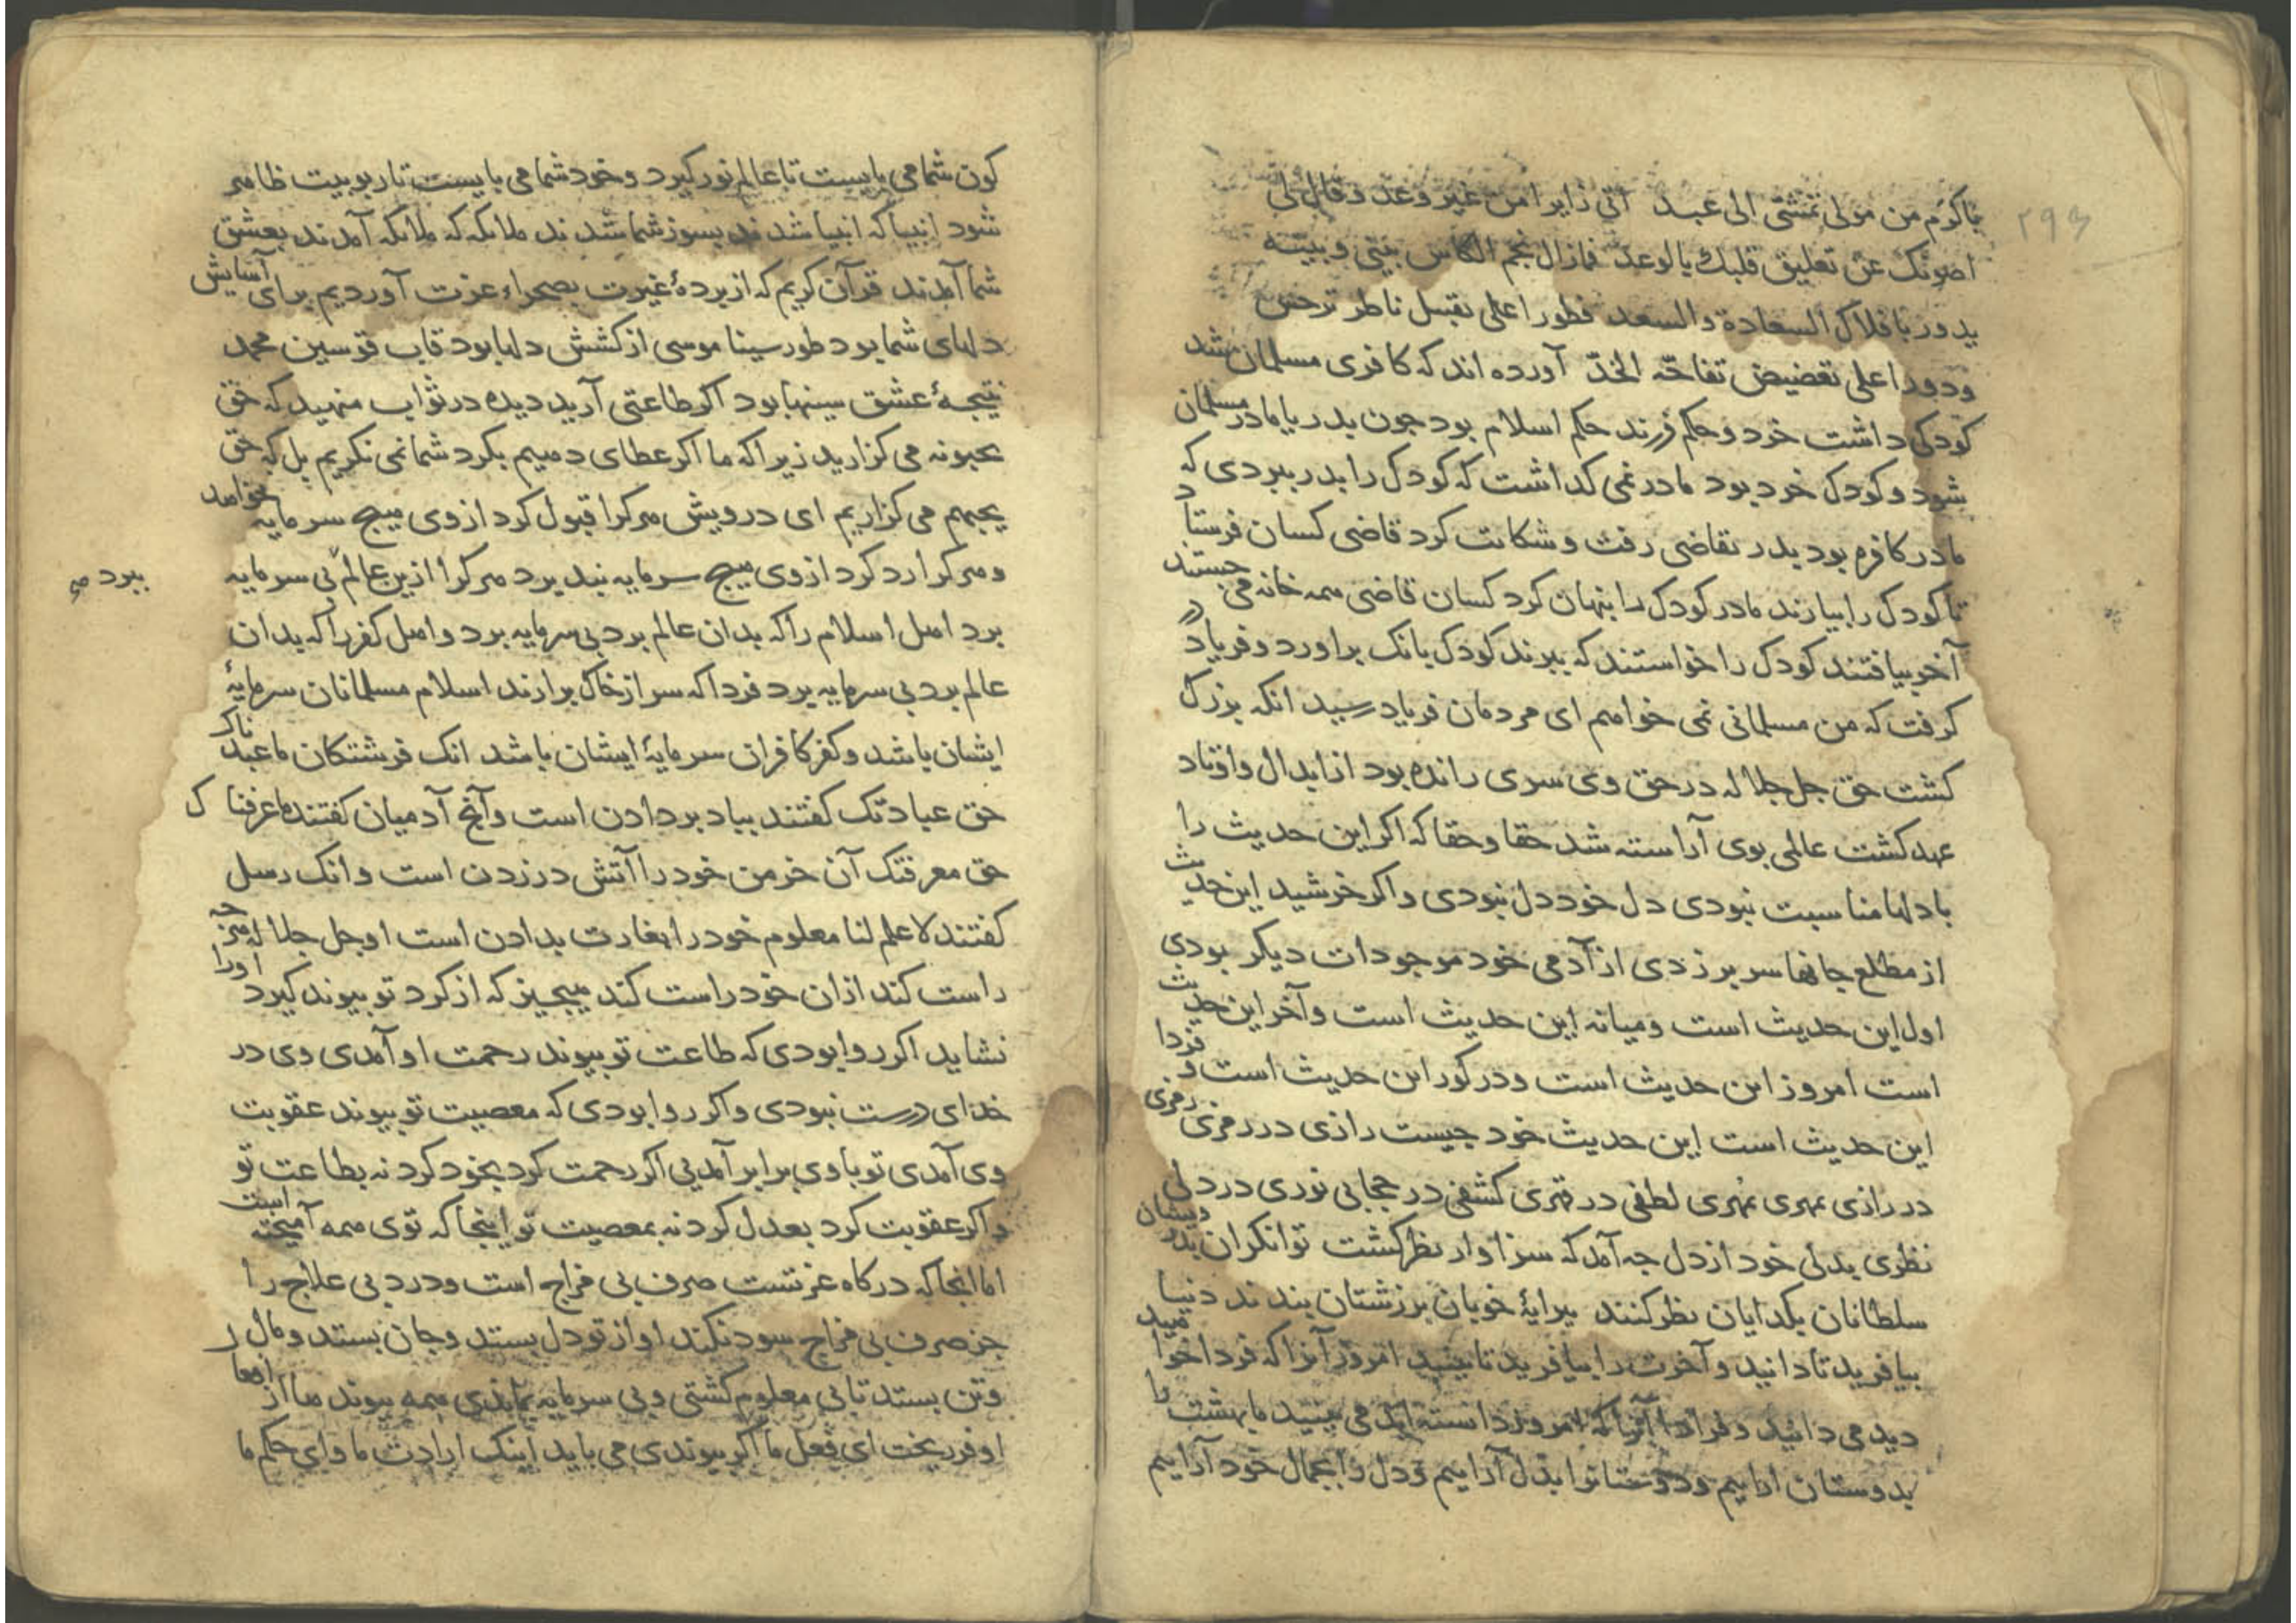 ۲۹۳
فاکرم من مولی تمشی الی عبد اتی زایرا من غیر وعد و قال لی
اصونک عن تعلیق قلبک بالوعد فمازال نجم الکاس بینی و بینه
یدور بافلاک السعادة والسعد فطورا علی تقبیل ناظر نرجس
ودورا علی تعضیض تفاحة الخد آورده اند که کافری مسلمان شد
کودکی داشت خرد و حکم فرزند حکم اسلام بود جون بدر یا مادر مسلمان
شود و کودک خرد بود مادر نمی کداشت که کودک را بدر ببردی که
مادر کافره بود بدر بقاضی رفت و شکایت کرد قاضی کسان فرستاد
تا کودک را بیارند مادر کودک را بنهان کرد کسان قاضی همه خانه می جستند
آخر بیافتند کودک را خواستند که ببرند کودک بانک براورد و فریاد در
کرفت که من مسلمانی نمی خواهم ای مردمان فریاد رسید انکه بزرک
کشت حق جل جلاله در حق وی سری رانده بود از ابدال و اوتاد
عهد کشت عالمی بوی آراسته شد حقا و حقا که اکر این حدیث را
با دلها مناسبت نبودی دل خود دل نبودی و اکر خرشید این حدیث
از مطلع جانها سر برزدی از آدمی خود موجودات دیکر بودی
اول این حدیث است و میانه این حدیث است و آخر این حدیث
است امروز این حدیث است و در کور این حدیث است و فردا
این حدیث است این حدیث خود جیست رازی در رمزی رمزی
در رازی مهری مهری لطفی در قهری کشفی در حجابی نوری در دلی
نظری بدلی خود از دل جه آمد که سزاوار نظر کشت توانکران بدرویشان
سلطانان بکدایان نظر کنند بیرایۀ خوبان بر زشتان بندند دنیا
بیافرید تا دانید و آخرت را بیافرید تا بینید امروز آنرا که فردا خواهید
دید می دانید و فردا آنرا که امروز دانسته اید می بینید ما بهشت را
بدوستان اراییم و دوستانرا بدل آراییم و دل را بجمال خود آراییم
کون شما می بایست تا عالم نور کیرد و خود شما می بایست تا ربوبیت ظاهر
شود انبیا که انبیا شدند بسوز شما شدند ملائکه که ملائکه آمدند بعشق
شما آمدند قرآن کریم که از بردۀ غیرت بصحراء عزت آوردیم برای آسایش
دلهای شما بود طور سینا موسی از کشش دلها بود قاب قوسین محمد
نتیجۀ عشق سینها بود اکر طاعتی آرید دیده در ثواب منهید که حق
یحبونه می کزارید زیرا که ما اکر عطای دهیم بکرد شما نمی نکریم بل که حق
یحبهم می کزاریم ای درویش هر کرا قبول کرد از وی هیج سرمایه نخواهد
و هر کرا رد کرد از وی هیج سرمایه نبدیرد هر کرا ازین عالم بی سرمایه
ببرد صح
برد اهل اسلام را که بدان عالم برد بی سرمایه برد و اهل کفر را که بدان
عالم برد بی سرمایه برد فردا که سر از خاک برارند اسلام مسلمانان سرمایۀ
ایشان باشد و کفر کافران سرمایۀ ایشان باشد انک فرشتکان ما عبدناک
حق عبادتک کفتند بباد بردادن است و آنج آدمیان کفتند ما عرفناک
حق معرفتک آن خرمن خود را آتش در زدن است و انک رسل
کفتند لا علم لنا معلوم خود را بغارت بدادن است او جل جلاله هرجه
راست کند ازان خود راست کند هیجیز که از کرد تو بیوند کیرد اورا
نشاید اکر روا بودی که طاعت تو بیوند رحمت او آمدی وی در
خدای درست نبودی و اکر روا بودی که معصیت تو بیوند عقوبت
وی آمدی تو با وی برابر آمدیی اکر رحمت کرد بخود کرد نه بطاعت تو
و اکر عقوبت کرد بعدل کرد نه بمعصیت تو اینجا که توی همه آمیخته است
اما انجا که درکاه عزتست صرف بی مزاج است و درد بی علاج را
جز صرف بی مزاج سود نکند او از تو دل بستد و جان بستد و مال
و تن بستد تا بی معلوم کشتی و بی سرمایه بماندی همه بیوندها از
او فرو ریخت ای فعل ما اکر بیوندی می باید اینک ارادت ما و ای حکم ما